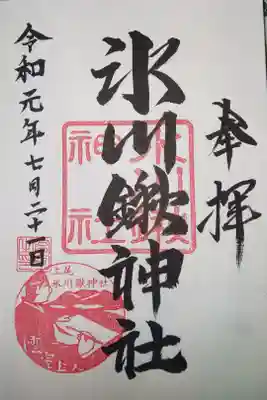 奉拝
氷川鍬神社
令和元年七月二十一日
上尾
氷川鍬神社